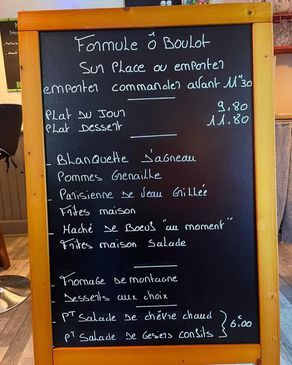 Formule Ô Boulot
Sur Place ou emporter
emporter commander avant 11H30
Plat du Jour 9.80
Plat Dessert 11.80
- Blanquette d'agneau
Pommes Grenaille
- Parisienne de Veau Grillée
Frites maison
- Haché de Boeuf "au moment"
Frites maison Salade
- Fromage de montagne
- Desserts aux choix
- PT Salade de chèvre chaud
- PT Salade de Gesiers confits } 6.00€